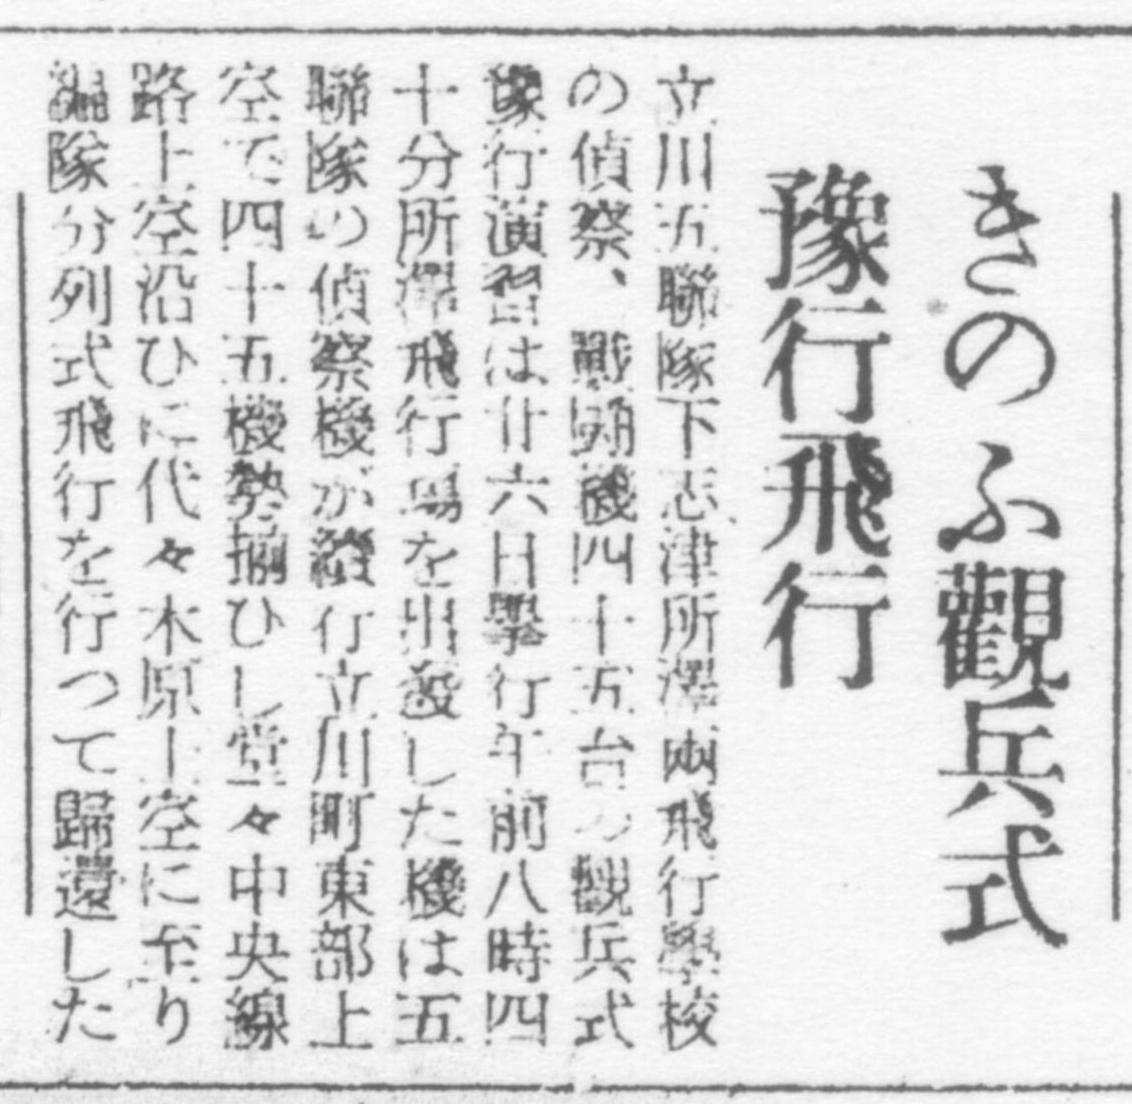 きのふ觀兵式
豫行飛行
立川五聯隊下志津所澤兩飛行學校
の偵察、戰鬪機四十五台の觀兵式
豫行演習は廿六日擧行午前八時四
十分所澤飛行場を出發した機は五
聯隊の偵察機が續行立川町東部上
空で四十五機勢揃ひし堂々中央線
路上空沿ひに代々木原上空に至り
編隊分列式飛行を行つて歸還した